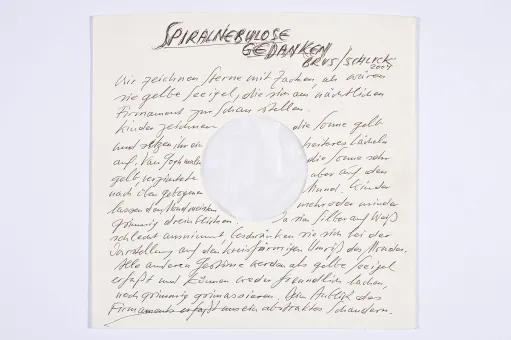 SPIRALNEBULOSE
GEDANKEN
BRUS/SCHLICK
2007
Wir zeichnen Sterne mit Zacken, als wären
sie gelbe Seeigel, die sich am nächtlichen
Firmament zur Schau stellen.
Kinder zeichnen die Sonne gelb
und setzen ihr ein heiteres Lächeln
auf. Van Gogh malte die Sonne sehr
gelb, verzichtete aber auf den
nach oben gebogenen Mund. Kinder
lassen den Mond meistens mehr oder minder
grimmig dreinblicken. Da sich Silber auf Weiß
schlecht ausnimmt, beschränken sie sich bei der
Darstellung auf den kreisförmigen Umriß des Mondes.
Alle anderen Gestirne werden als gelbe Seeigel
erfaßt und können weder freundlich lachen,
noch grimmig grimassieren. Den Anblick des
Firmaments erfaßt uns ein abstraktes Schaudern.